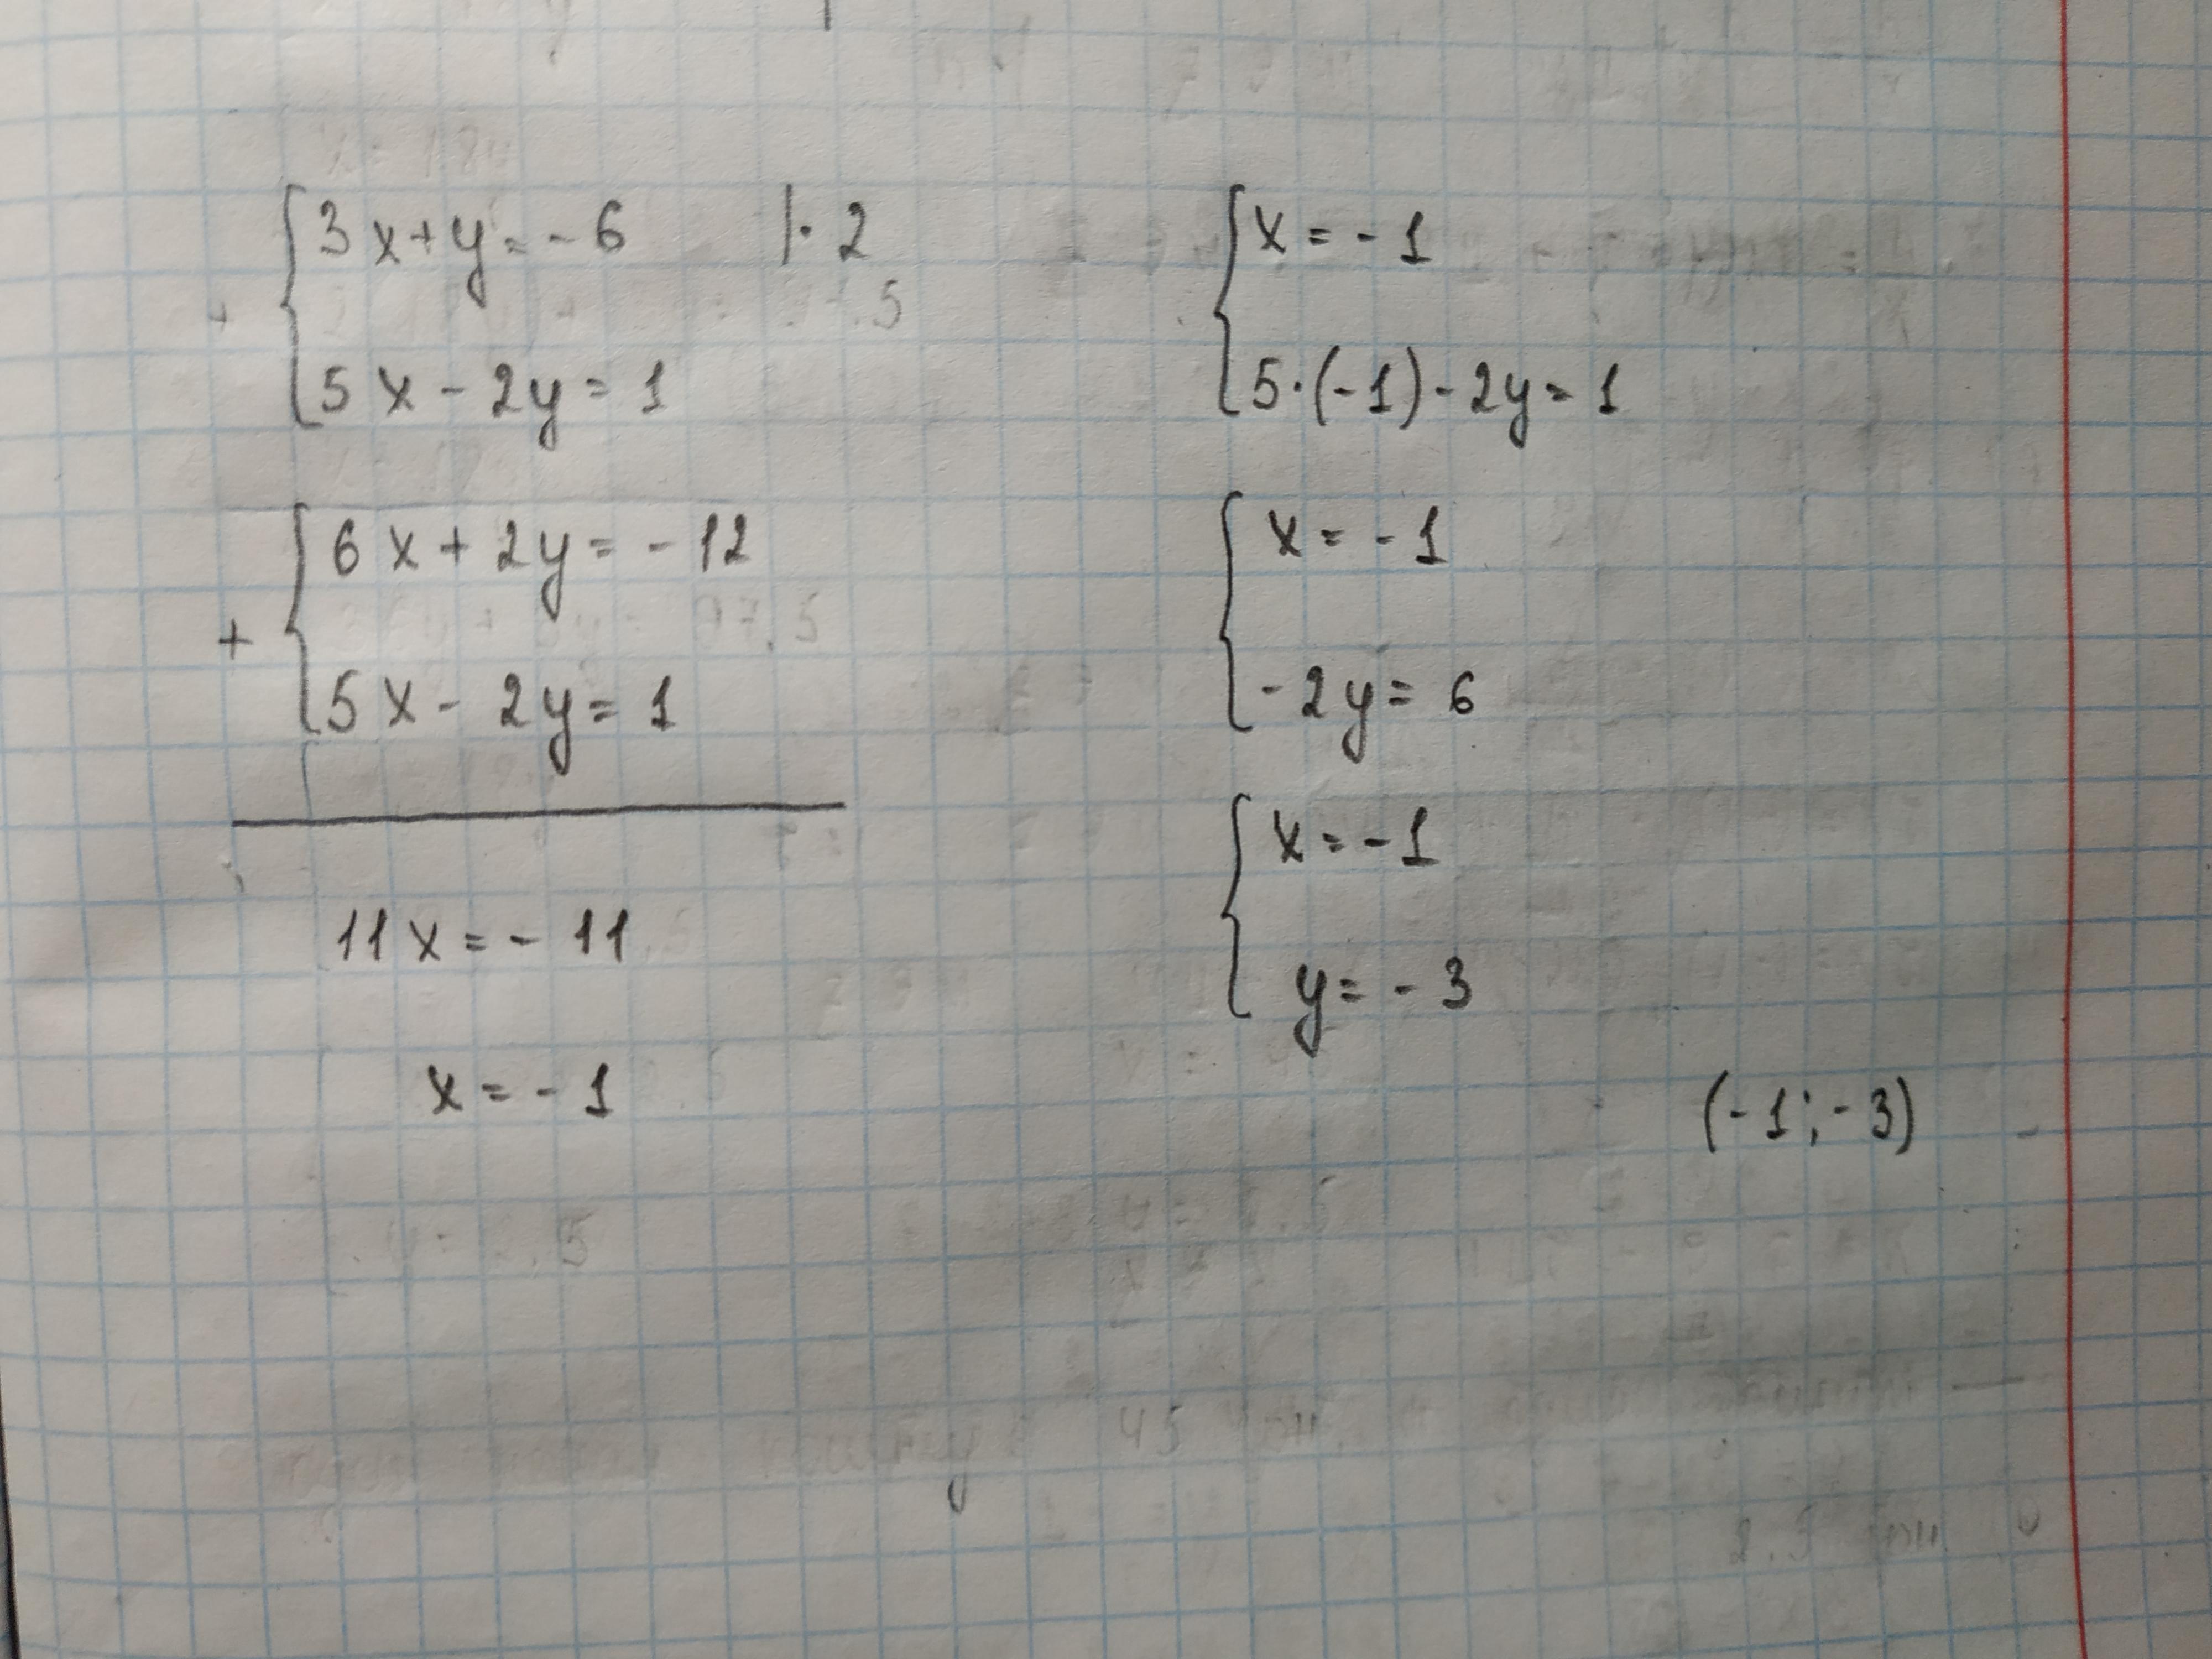 3x+y=-6 |·2
5x-2y=1
+
6x+2y=-12
5x-2y=1
11x=-11
x=-1
x=-1
5·(-1)-2y=1
x=-1
-2y=6
x=-1
y=-3
(-1;-3)